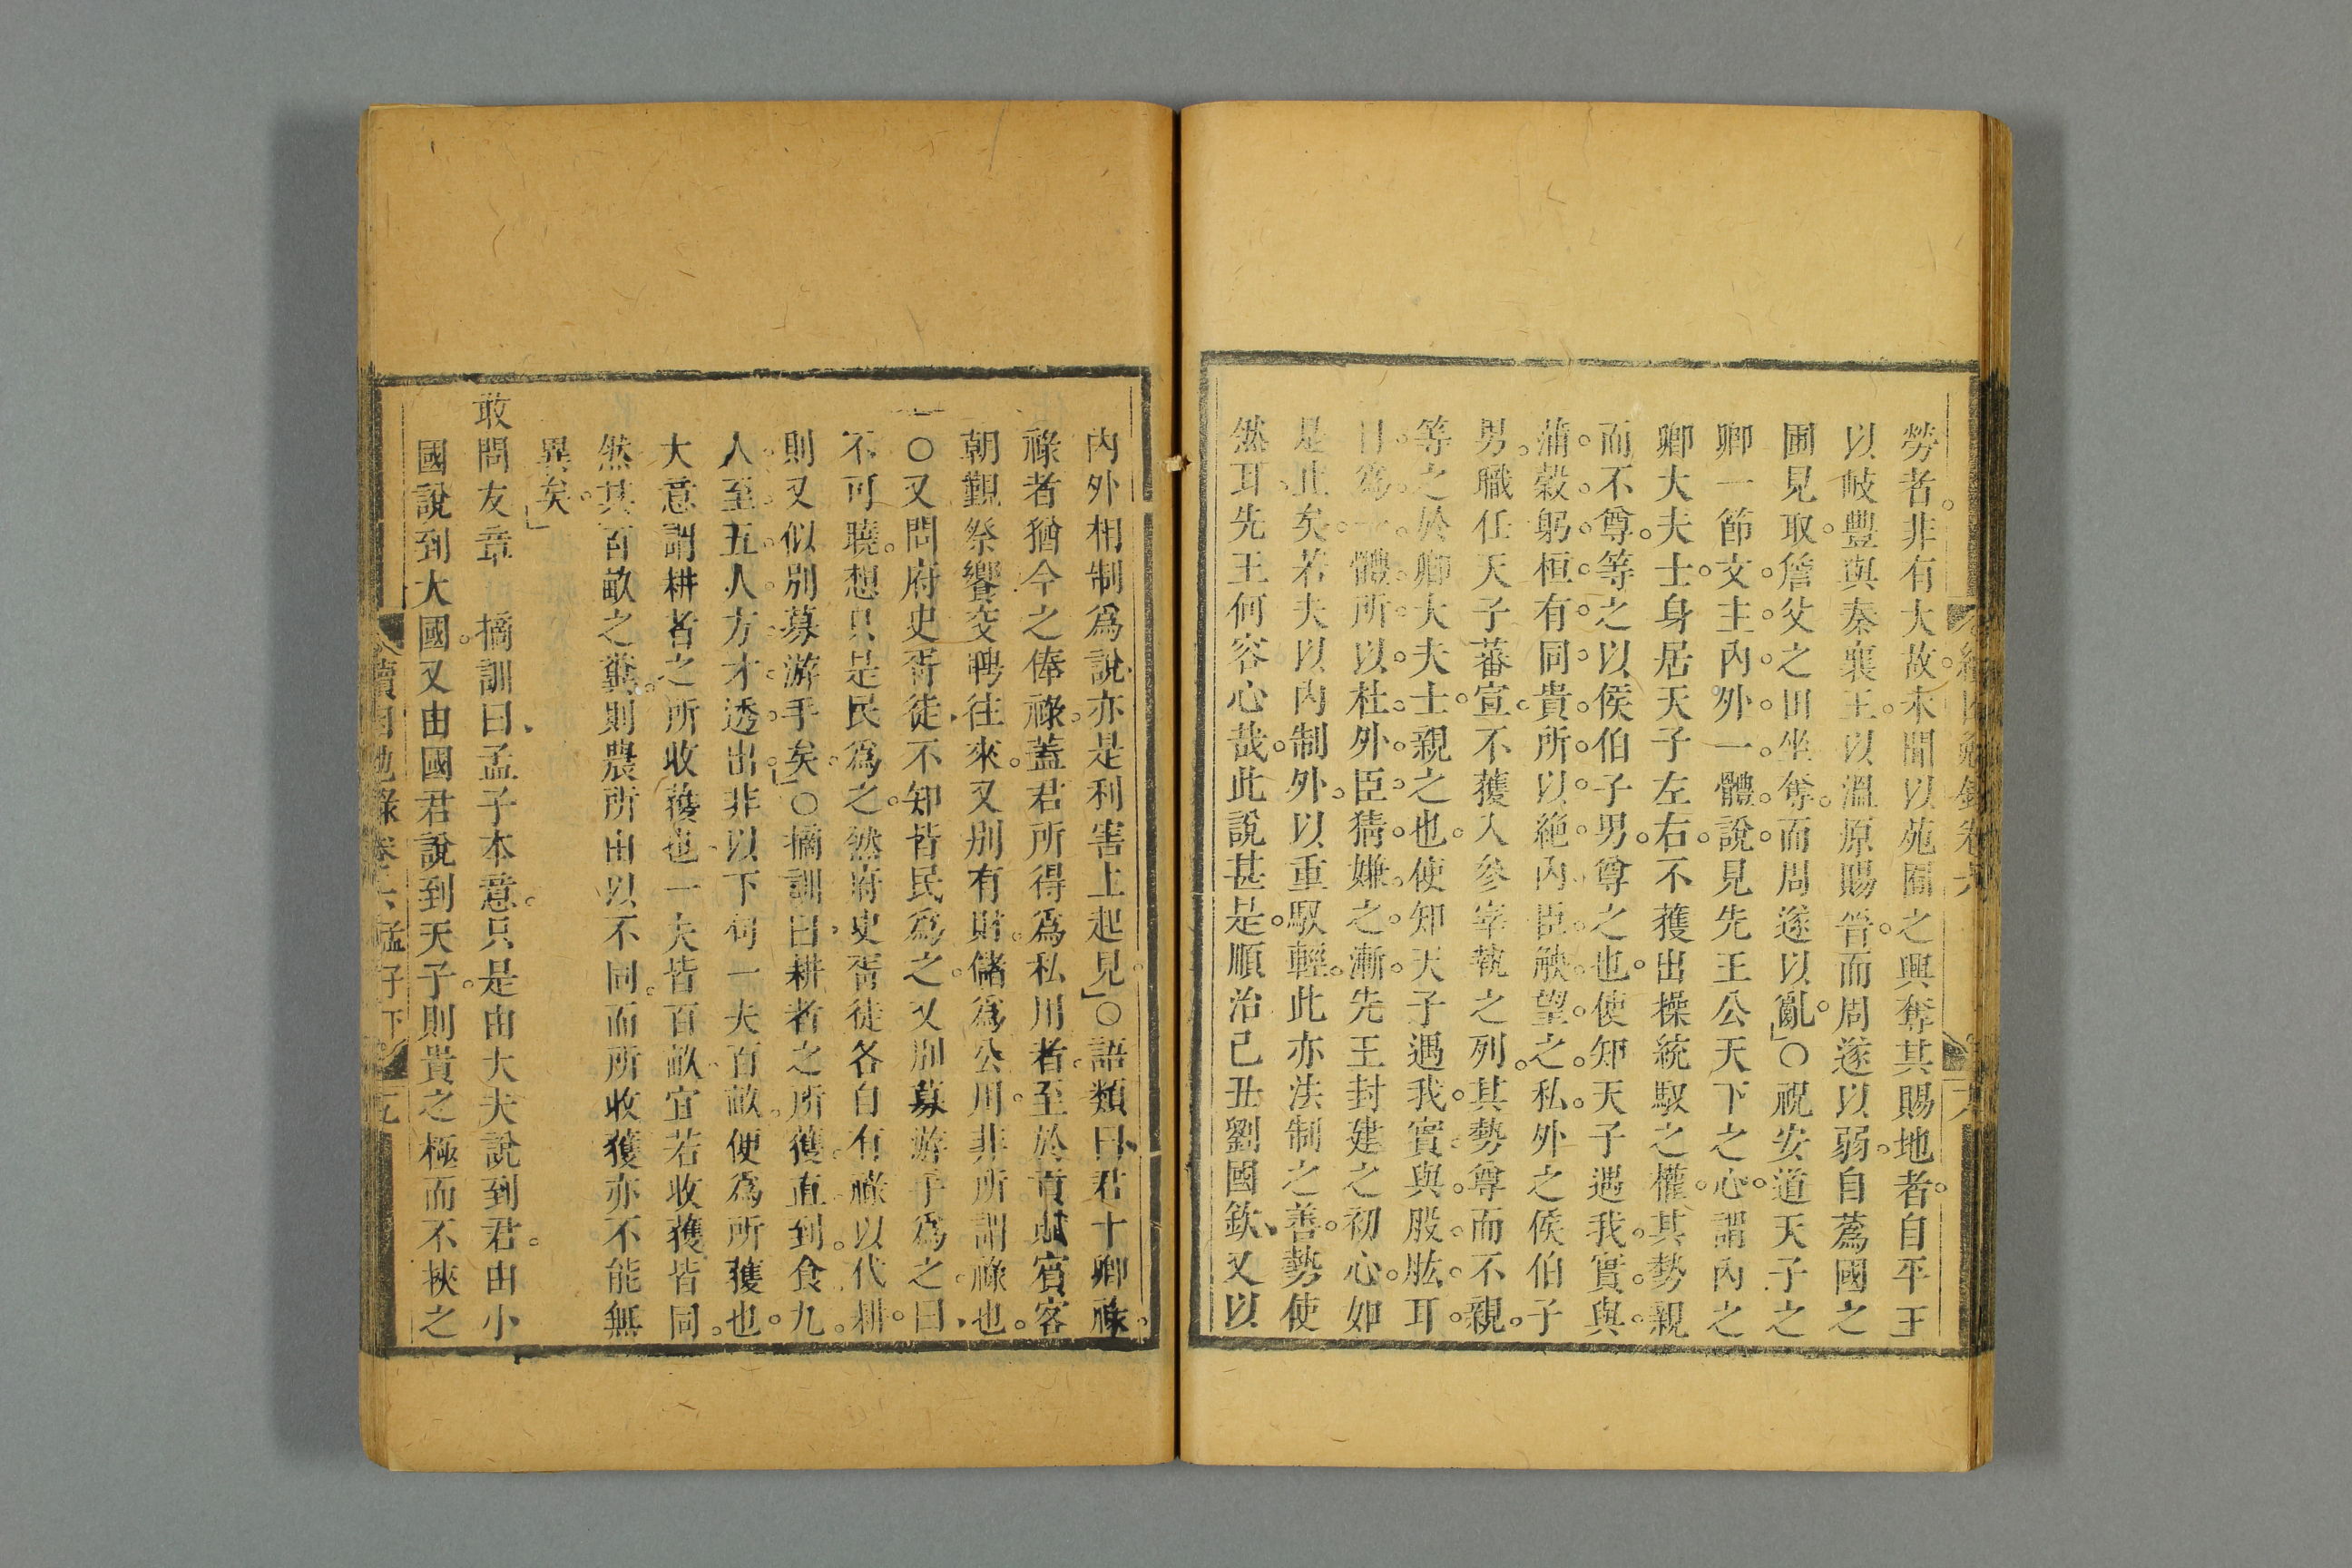 勞者非有大故未聞以苑囿之興奪其賜地者自平王
以岐豐與秦襄王以溫原賜晉而周遂以弱自蔿國之
圃見取詹父之田坐奪而周遂以亂」○祝安道天子之
卿一節文主內外一體說見先王公天下之心謂內之
卿大夫士身居天子左右不獲出操統馭之權其勢親
而不尊等之以侯伯子男尊之也使知天子遇我實與
蒲榖躬桓有同貴所以絶內臣觖望之私外之侯伯子
男職任天子蕃宣不獲入參宰執之列其勢尊而不親
等之於卿大夫士親之也使知天子遇我實與股肱耳
目為一體所以杜外臣猜嫌之漸先王封建之初心如
是止矣若夫以內制外以重馭輕此亦法制之善勢使
然耳先王何容心哉此說甚是順治己丑劉國欽又以
內外相制爲說亦是利害上起見」○語類曰君十卿祿
祿者猶今之俸祿蓋君所得爲私用者至於貢賦賓客
朝覲祭饗交聘往來又別有財儲爲公用非所謂祿也
○又問府史胥徒不知皆民爲之又別募游手爲之曰
不可曉想只是民爲之然府史胥徒各自有祿以代耕
則又似別募游手矣」○摘訓曰耕者之所獲直到食九
人至五人方才透出非以下何一夫百畝便爲所獲也
大意謂耕者之所收獲也一夫皆百畝宜若收獲皆同
然其百畝之糞則農所由以不同而所收獲亦不能無
異矣」
敢問友章 摘訓曰孟子本意只是由大夫說到君由小
國說到大國又由國君說到天子則貴之極而不挾之
勉錄卷六 孟子下 五